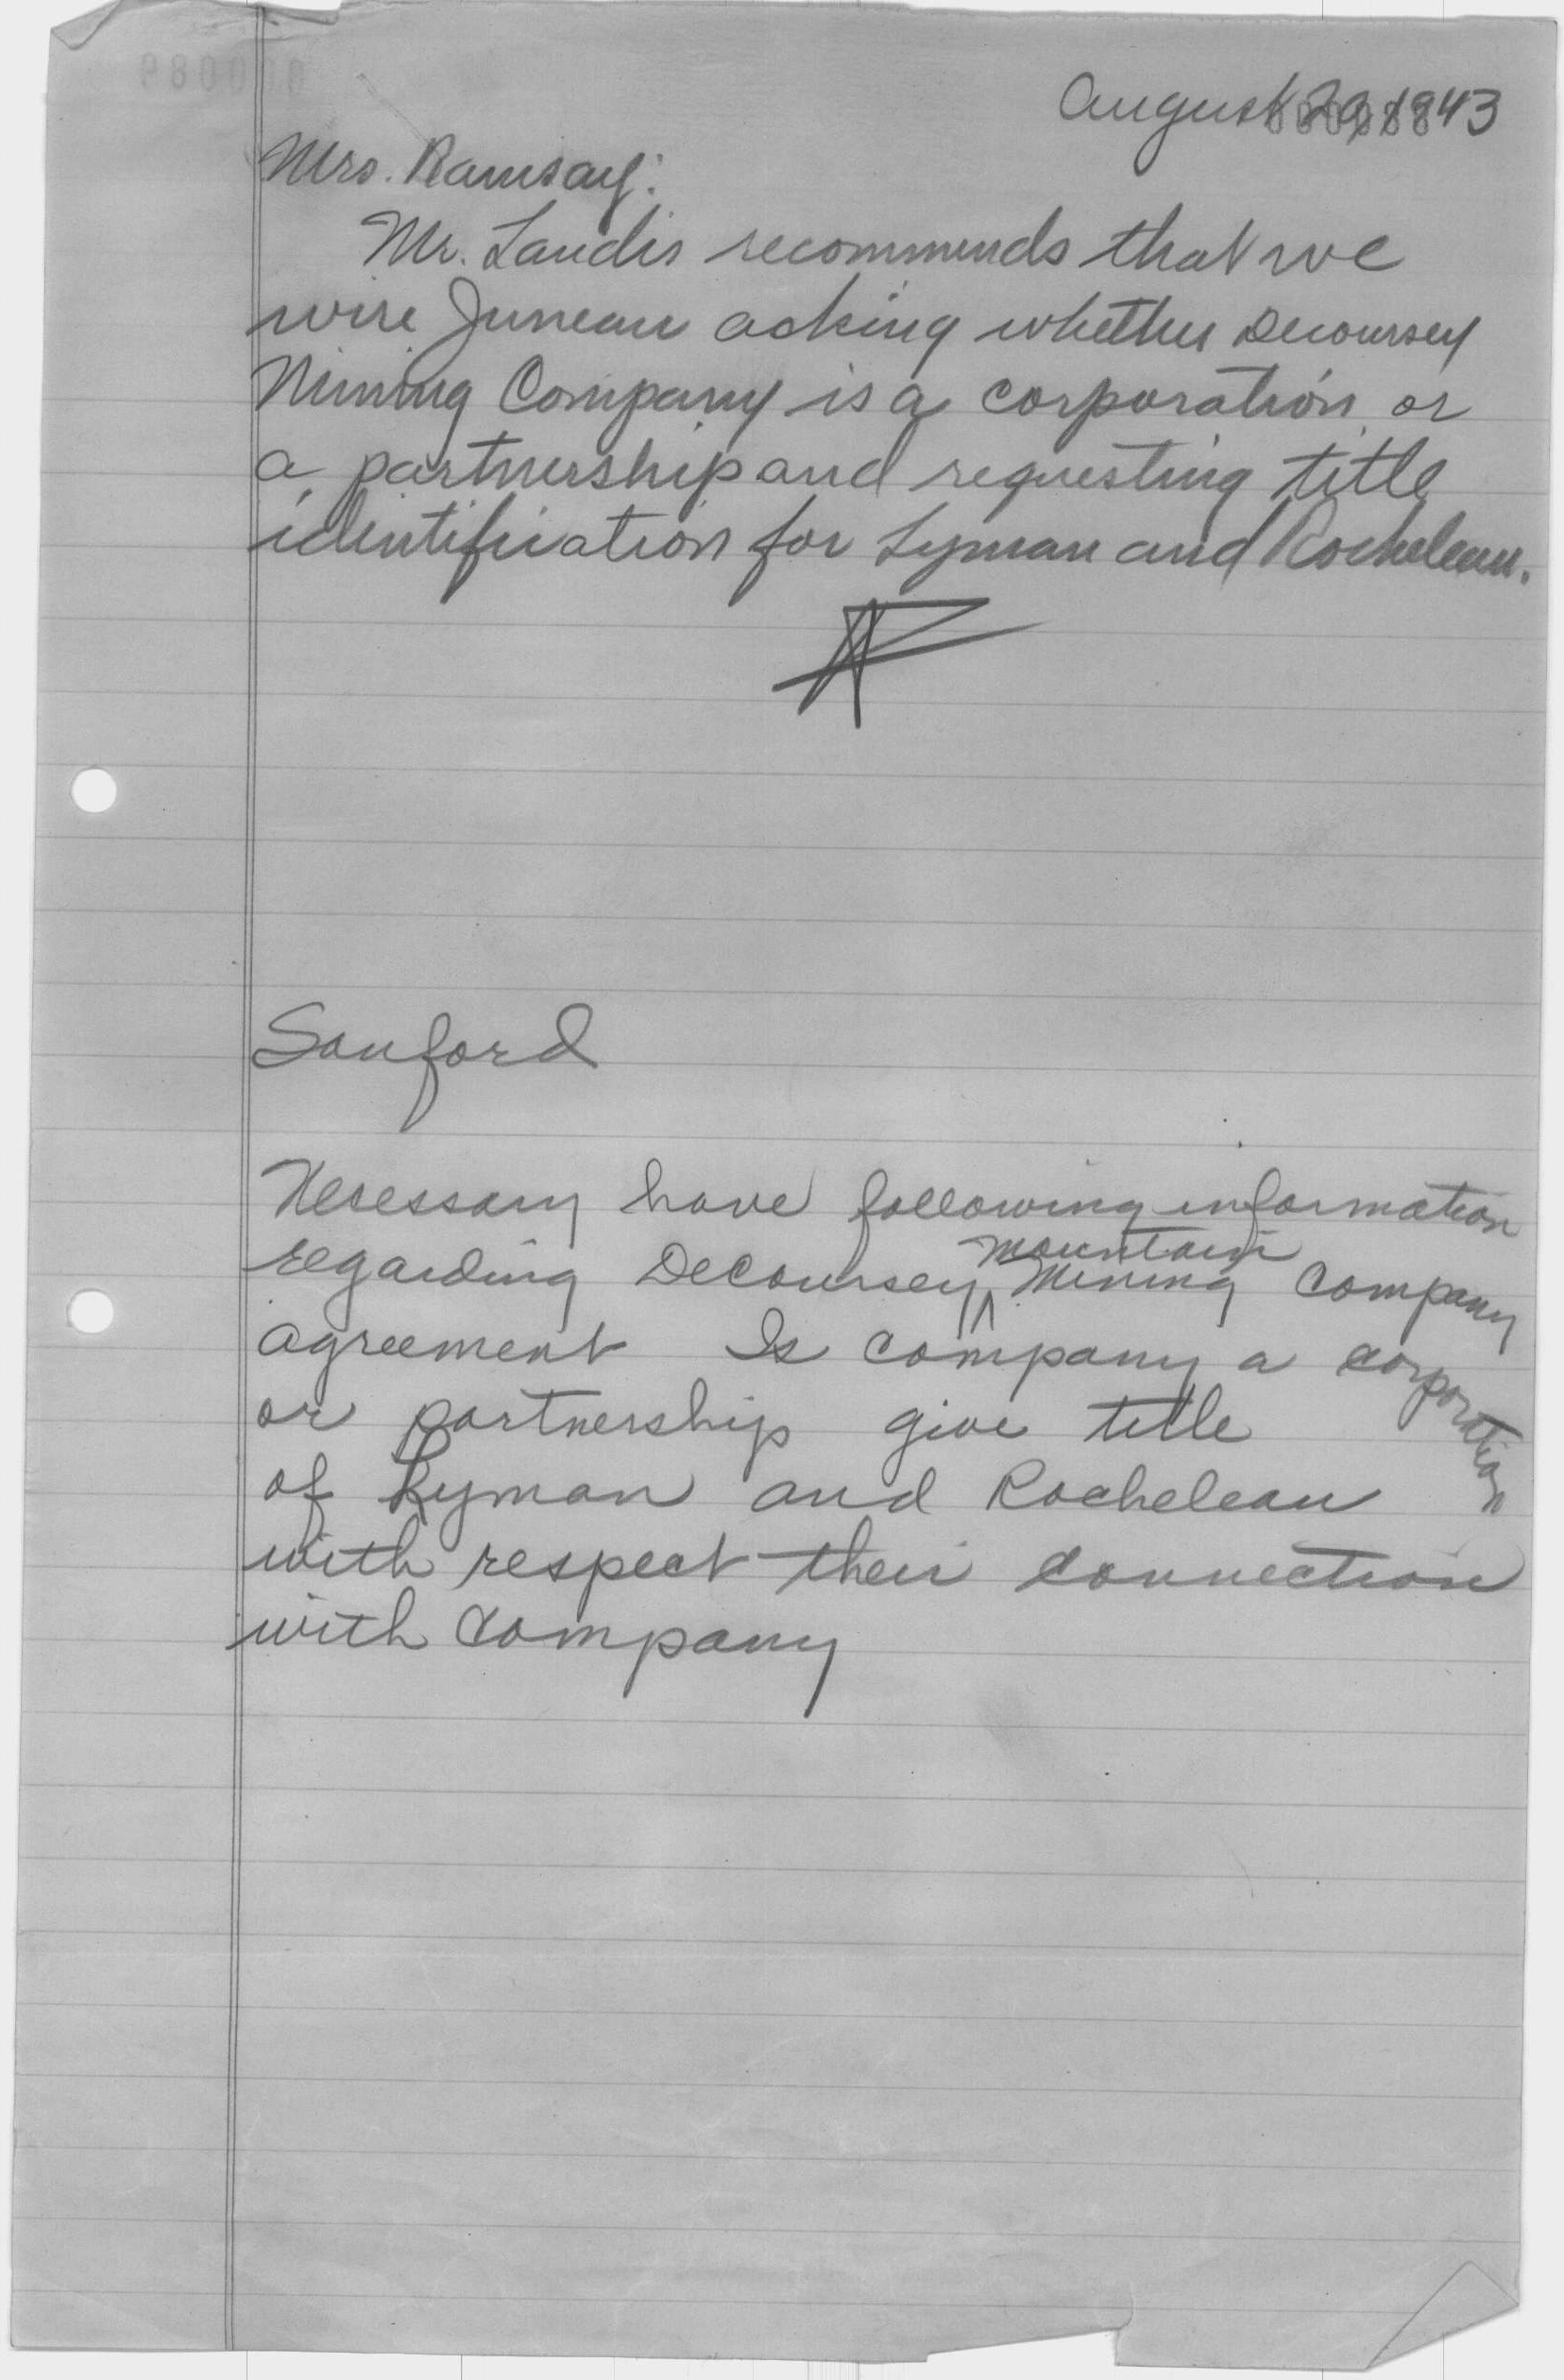 August 29, 1943
Mrs. Ramsay:
Mr. Landis recommends that we
wire Juneau asking whether Decoursey
Mining Company is a corporation or
a partnership and requesting title
identification for Lyman and Rocheleau.
Sanford
Necessary have following information
regarding DeCoursey mountain Mining Company
agreement Is company a corporation
or partnership give title
of Lyman and Rocheleau
with respect their connection
with company